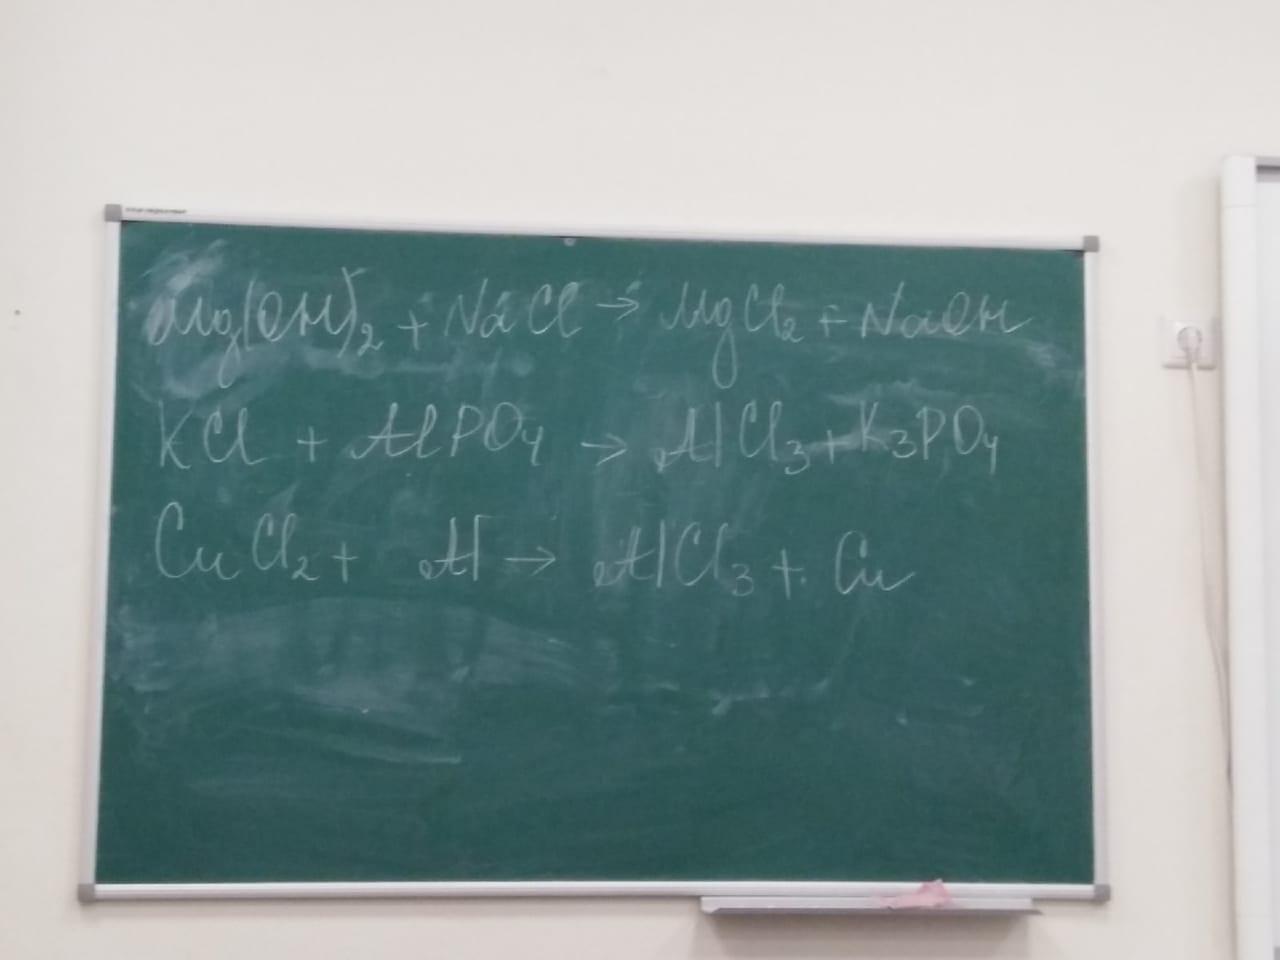 Mg(OH)₂ + NaCl → MgCl₂ + NaOH
KCl + AlPO₄ → AlCl₃ + K₃PO₄
CuCl₂ + Al → AlCl₃ + Cu